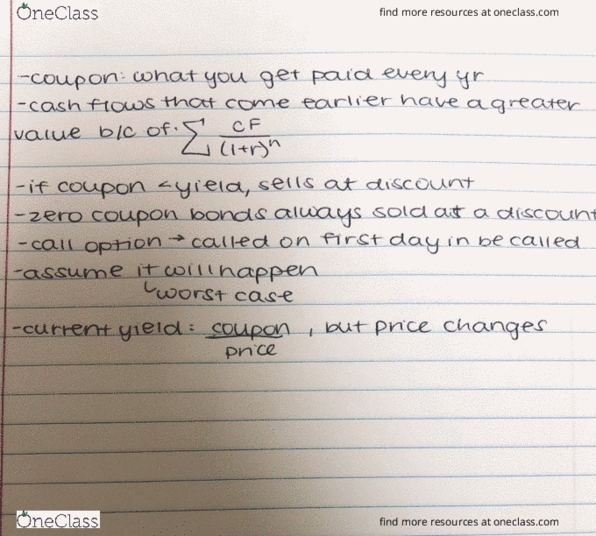 OneClass
find more resources at oneclass.com
-coupon: what you get paid every yr
-cash flows that come earlier have a greater
value b/c of: ∑ CF / (1+r)^n
-if coupon < yield, sells at discount
-zero coupon bonds always sold at a discount
-call option → called on first day in be called
-assume it will happen
↳ worst case
-current yield: coupon / price, but price changes
OneClass
find more resources at oneclass.com